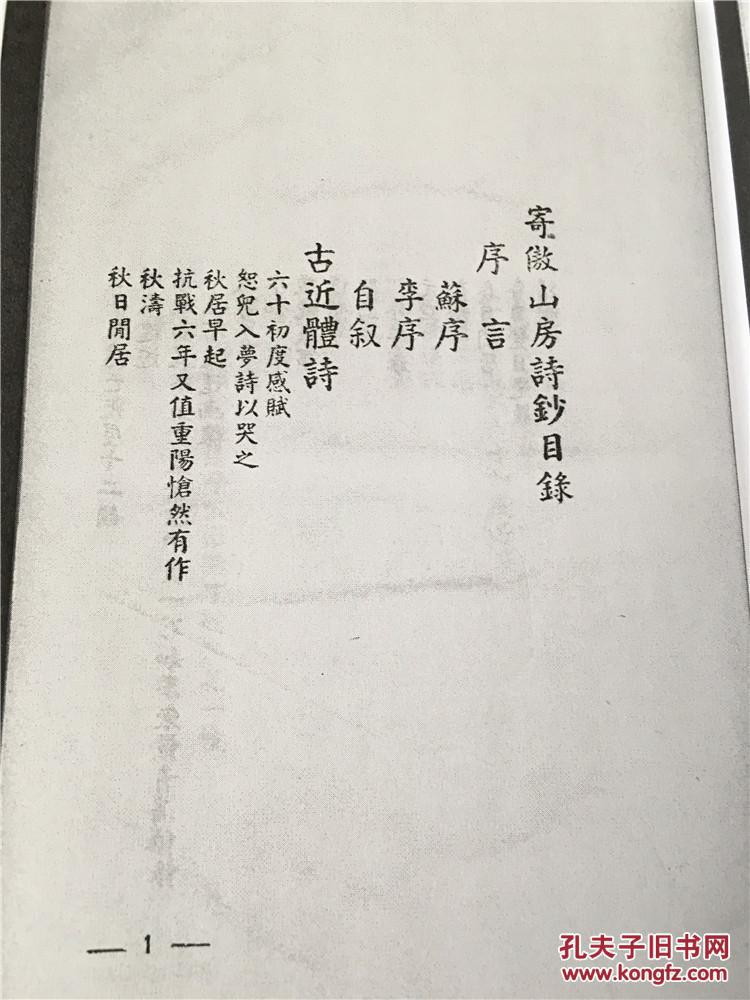 寄傲山房詩鈔目錄
序言
蘇序
李序
自叙
古近體詩
六十初度感賦
恕兒入夢詩以哭之
秋居早起
抗戰六年又值重陽愴然有作
秋濤
秋日閒居
— 1 —
孔夫子旧书网
www.kongfz.com